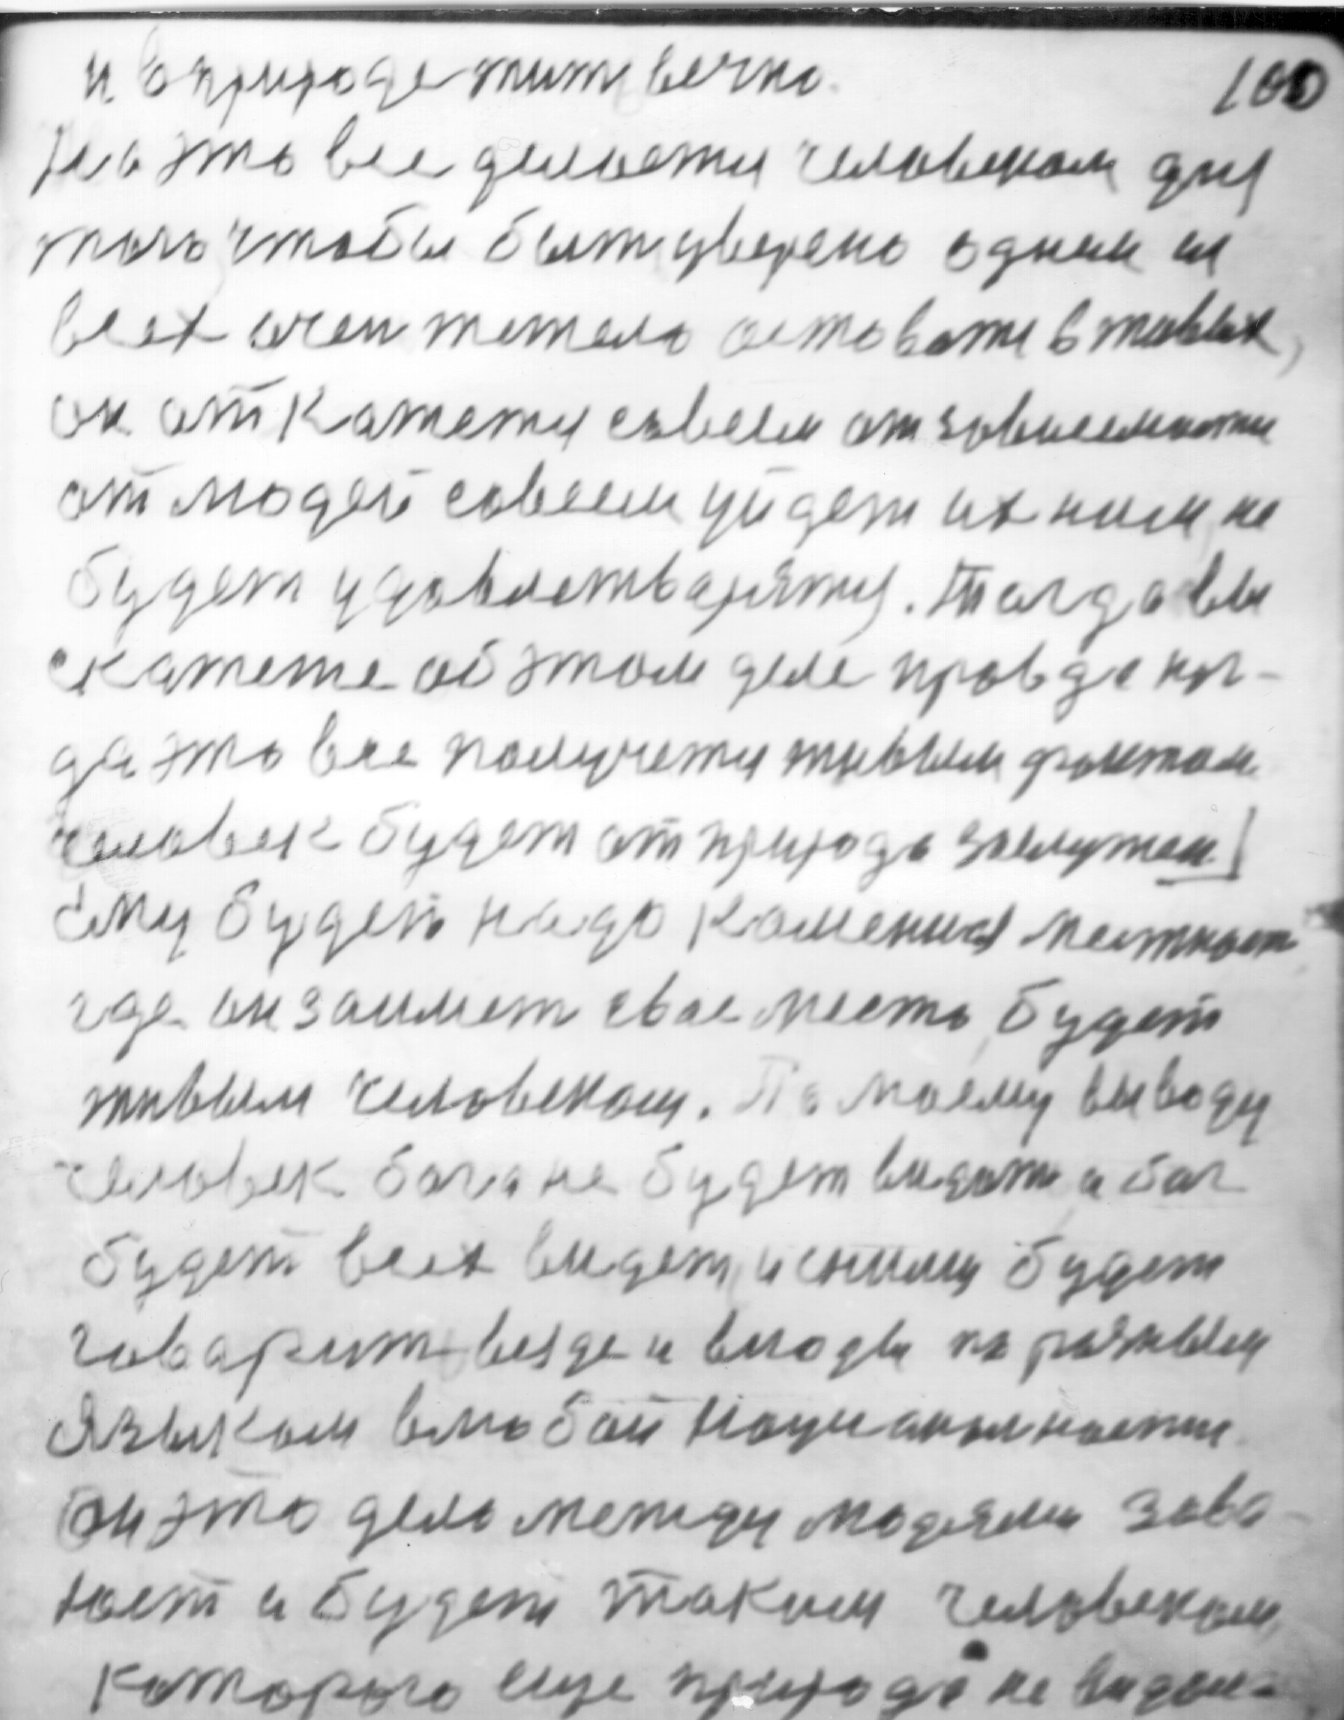 и в природе жит вечно. 100
Но это все делается человеком для
того чтобы быт уверено одним из
всех очен тежело оставатся в живых,
он откажется савсем от зависимости
от людей савсем уйдет их ним не
будет удовлетварятся. Тагда вы
скажете об этом деле правда ког-
да это все получется живым фактом
человек будет от природа заслужен.
Ему будет надо каменная местност
где он займет свое место, будет
живым человеком. По моему выводу
человек бога не будет видят а бог
будет всех видет, и сними будет
говарит везде и всюды по разным
языкам в любой национальности.
Он это дело между людями заво-
юет и будет таким человеком,
которого еще природа не видела